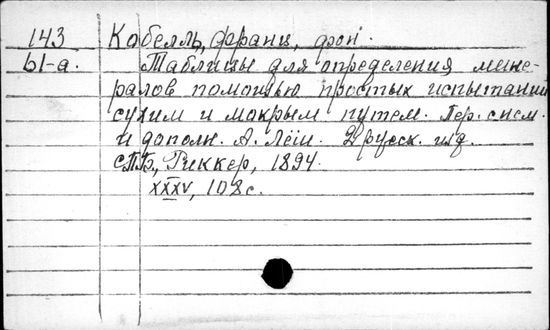 143 Кобелль, Франц, фон.
Ы-а. Таблицы для определения мине-
ралов помощью простых испытаний
сухим и мокрым путем. Пер. с нем.
и дополн. А. Лёш. 2 русск. изд.
СПб, Риккер, 1894.
XXXV, 108 с.